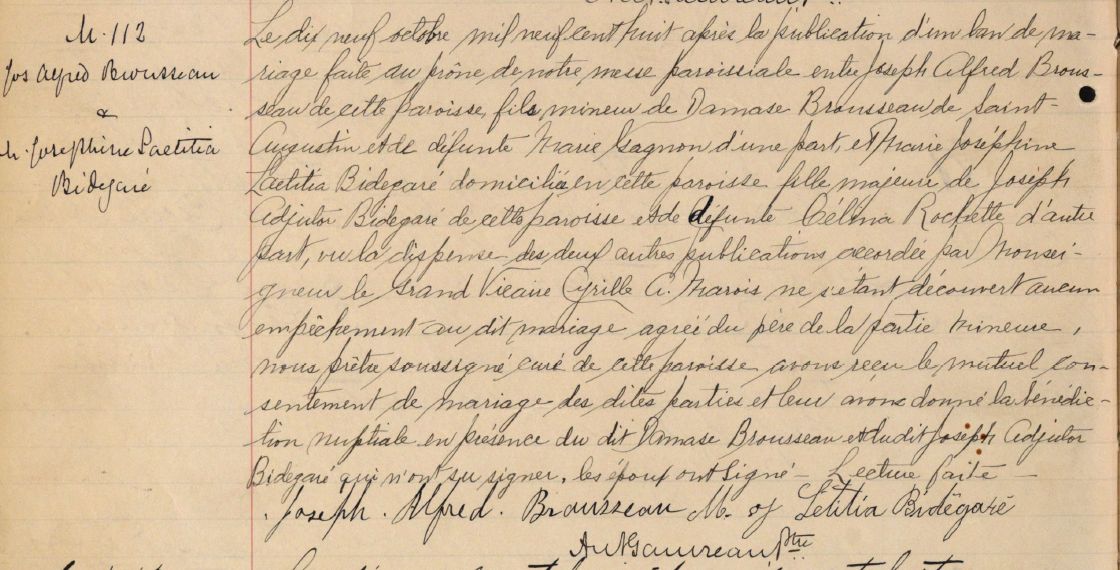 M. 112
Jos Alfred Brousseau
&
M. Josephine Laetitia
Bidegaré
Le dix neuf octobre mil neuf cent huit après la publication d'un ban de ma-
riage faite au prône de notre messe paroissiale entre Joseph Alfred Brous-
seau de cette paroisse, fils mineur de Damase Brousseau de Saint-
Augustin et de défunte Marie Gagnon d'une part, et Marie Joséphine
Laetitia Bidegaré domiciliée en cette paroisse fille majeure de Joseph
Adjutor Bidegaré de cette paroisse et de défunte Célina Rochette d'autre
part, vu la dispense des deux autres publications accordée par Monsei-
gneur le Grand Vicaire Cyrille A. Marois ne s'étant découvert aucun
empêchement au dit mariage agréé du père de la partie mineure,
nous prêtre soussigné curé de cette paroisse avons reçu le mutuel con-
sentement de mariage des dites parties et leur avons donné la bénédic-
tion nuptiale en présence du dit Damase Brousseau et du dit Joseph Adjutor
Bidegaré qui n'ont su signer, les époux ont signé - Lecture faite -
Joseph. Alfred. Brousseau M. J Letitia Bidégaré
Ptre